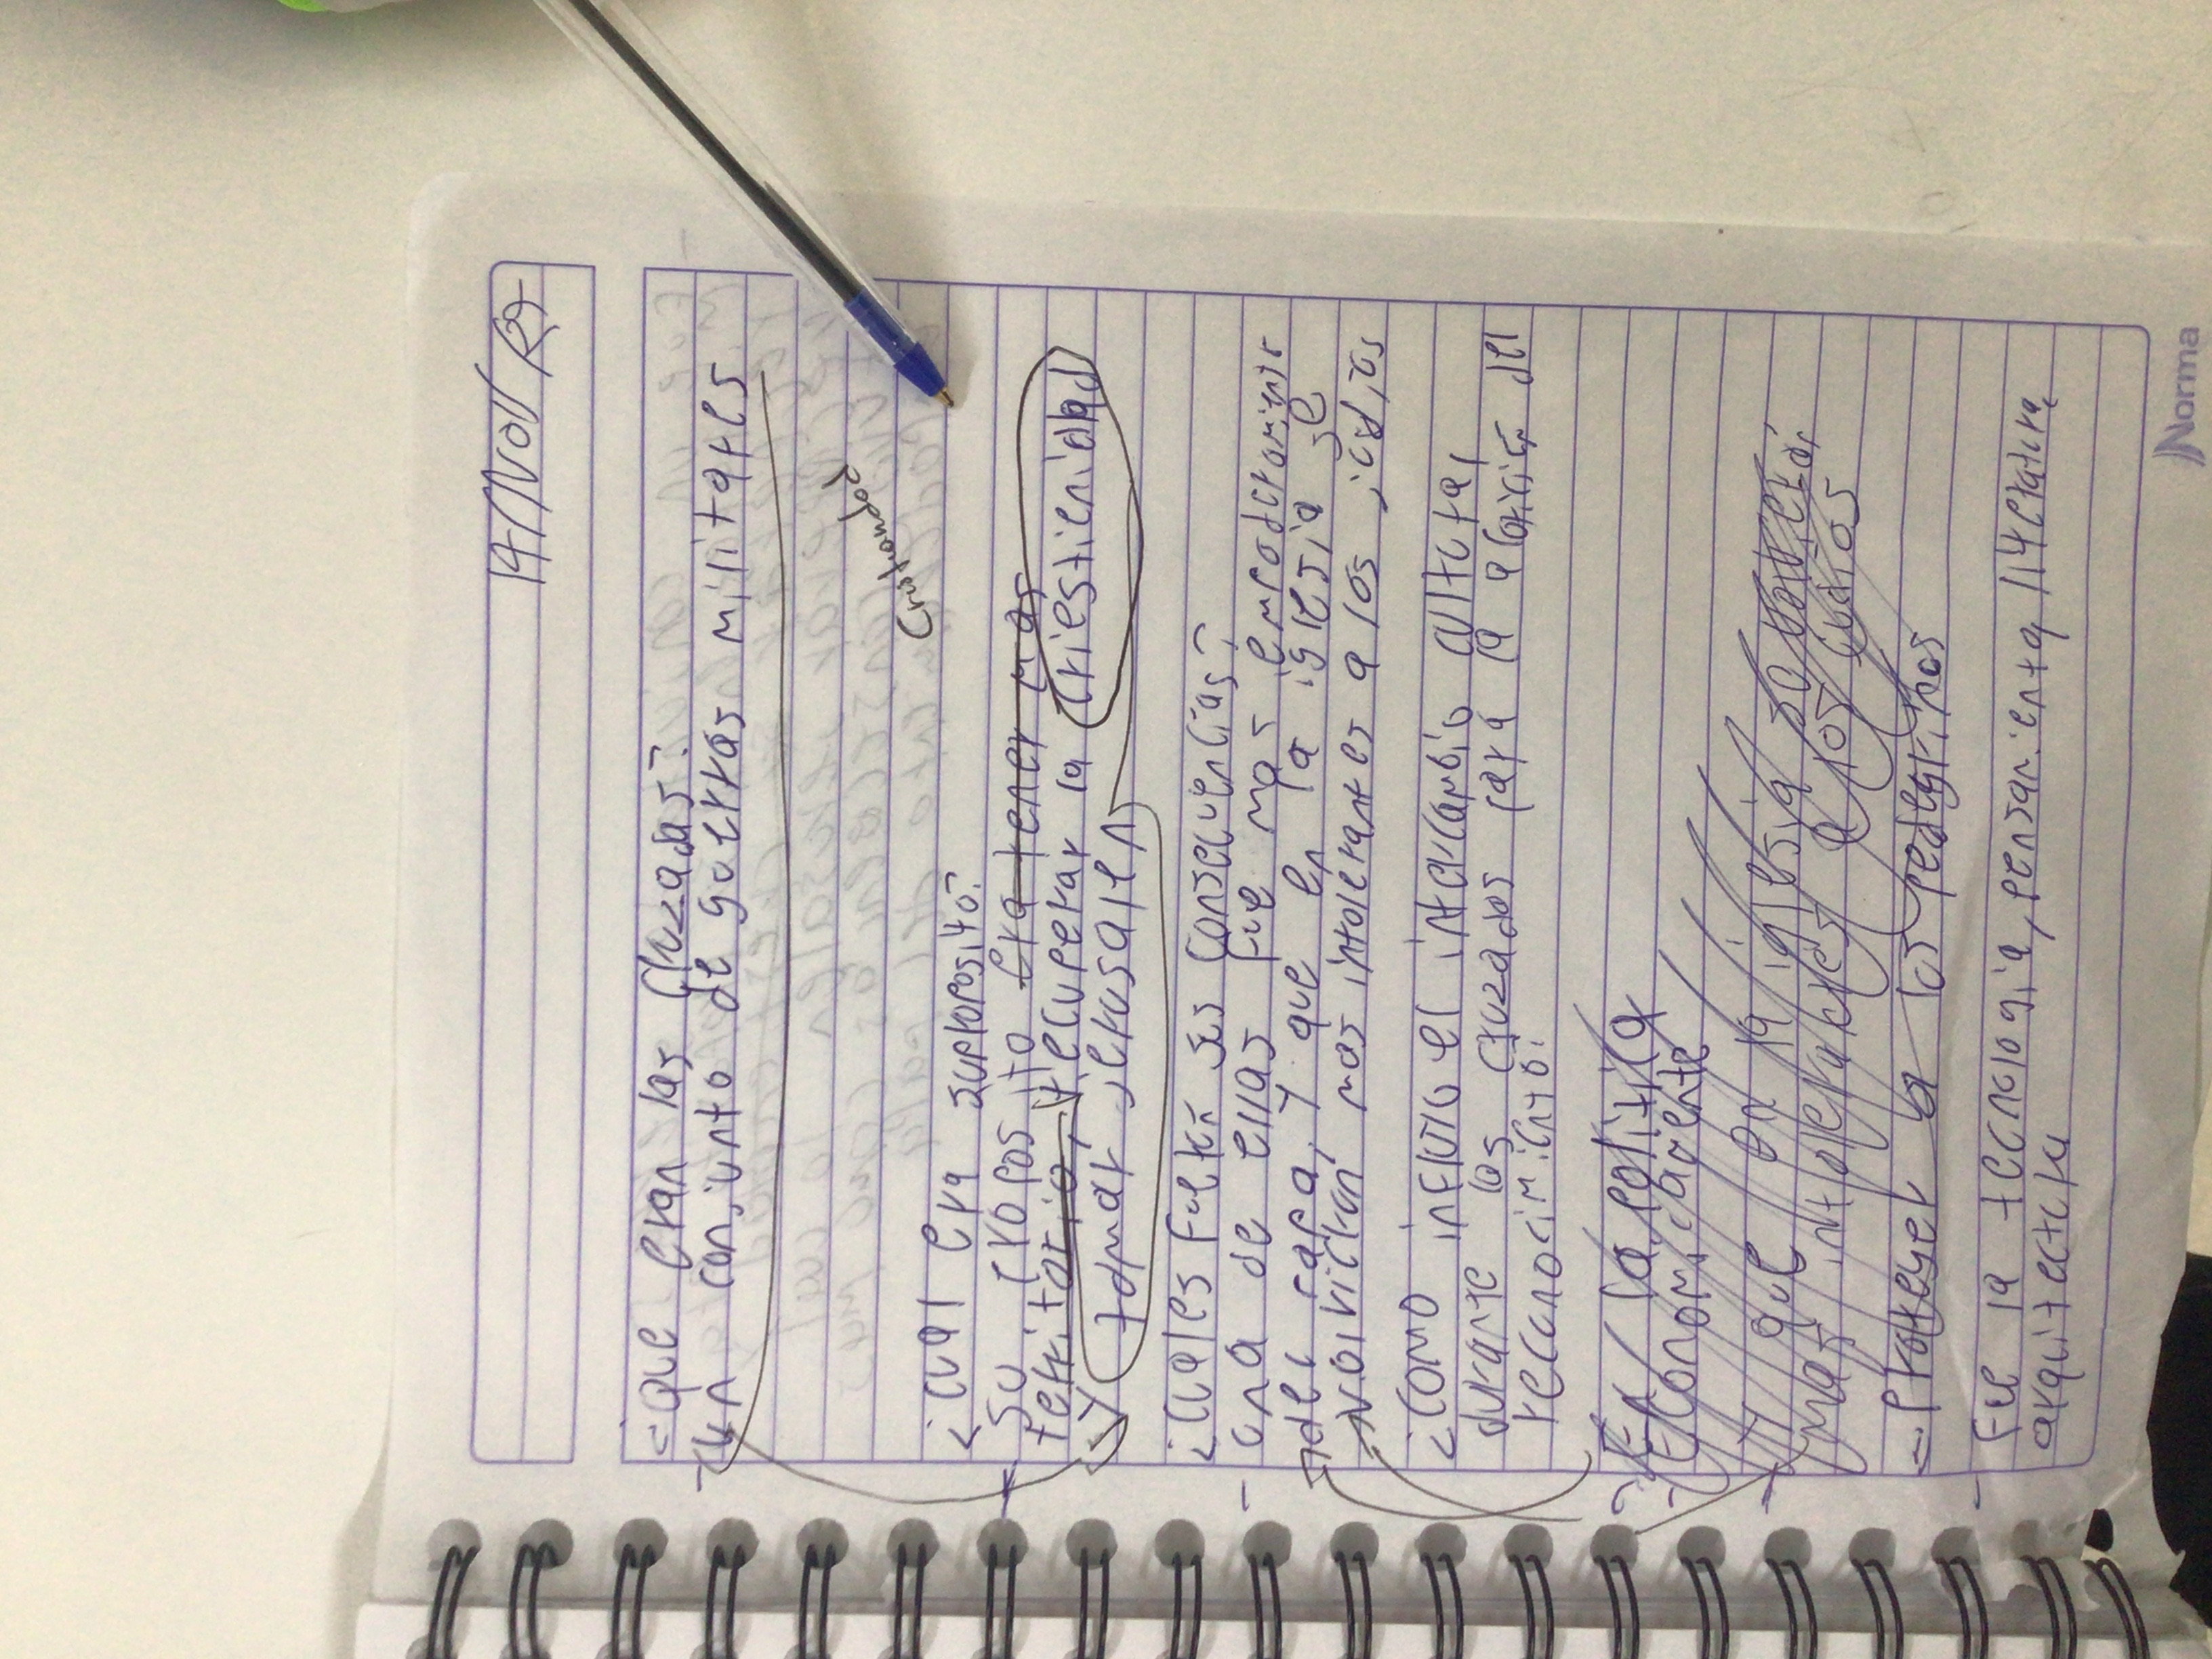 14/Nov/
¿que Eran las Cruzadas?
un conjunto de guerras militares
Cristiandad
¿cual Era su proposito?
Su propósito Era tener mas
territorio, recuperar la Criestienidad
y tomar Jerusalen
¿cuales fueron sus Consecuencias?
una de ellas fue mas
del papa, y que en la iglesia se
volvieran mas intolerantes a los
¿como influio el intercambio cultural
durante las Cruzadas para la del
reconocimiento?
En la politica
Economicamente
y que En la iglesia
mas intolerantes a los judios
- Proteger a los
Fue la tecnologia, pensamiento, literatura,
arquitectura
Norma